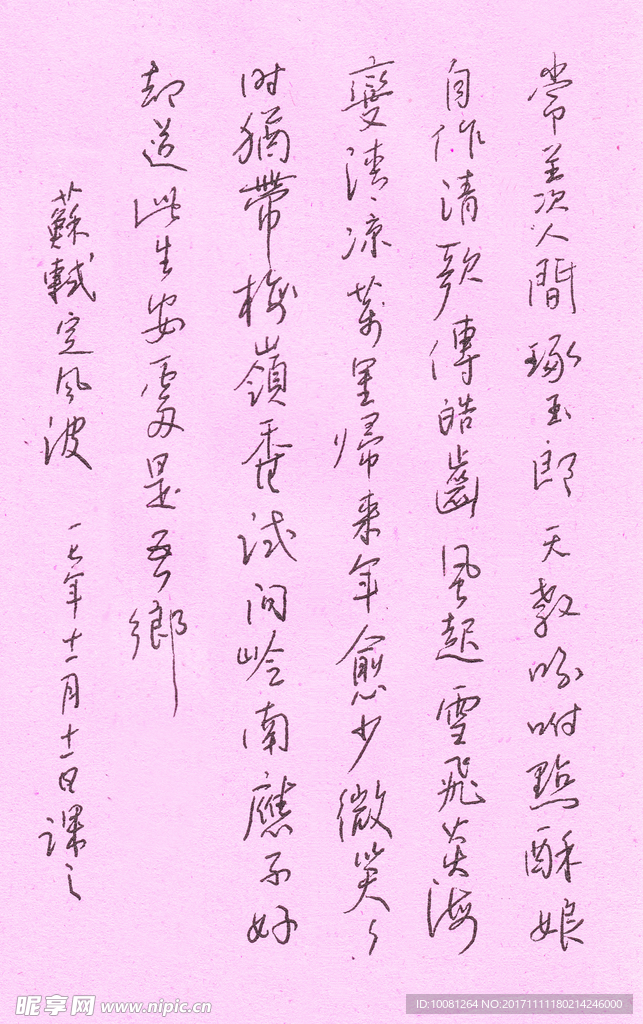 常羨人間琢玉郎天教吩咐點酥娘
自作清歌傳皓齒風起雪飛炎海
變清凉萬里歸来年愈少微笑々
时猶帶梅嶺香试问岭南應不好
却道此生安處是吾鄉
蘇軾定风波 一七年十一月十一日課之
昵享网 www.nipic.cn
ID:10081264 NO:20171111180214246000